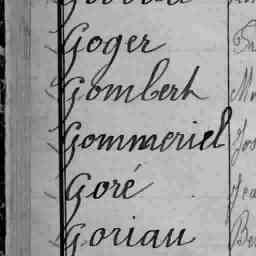 Goger
Gombert
Gommeriel
Goré
Goriau